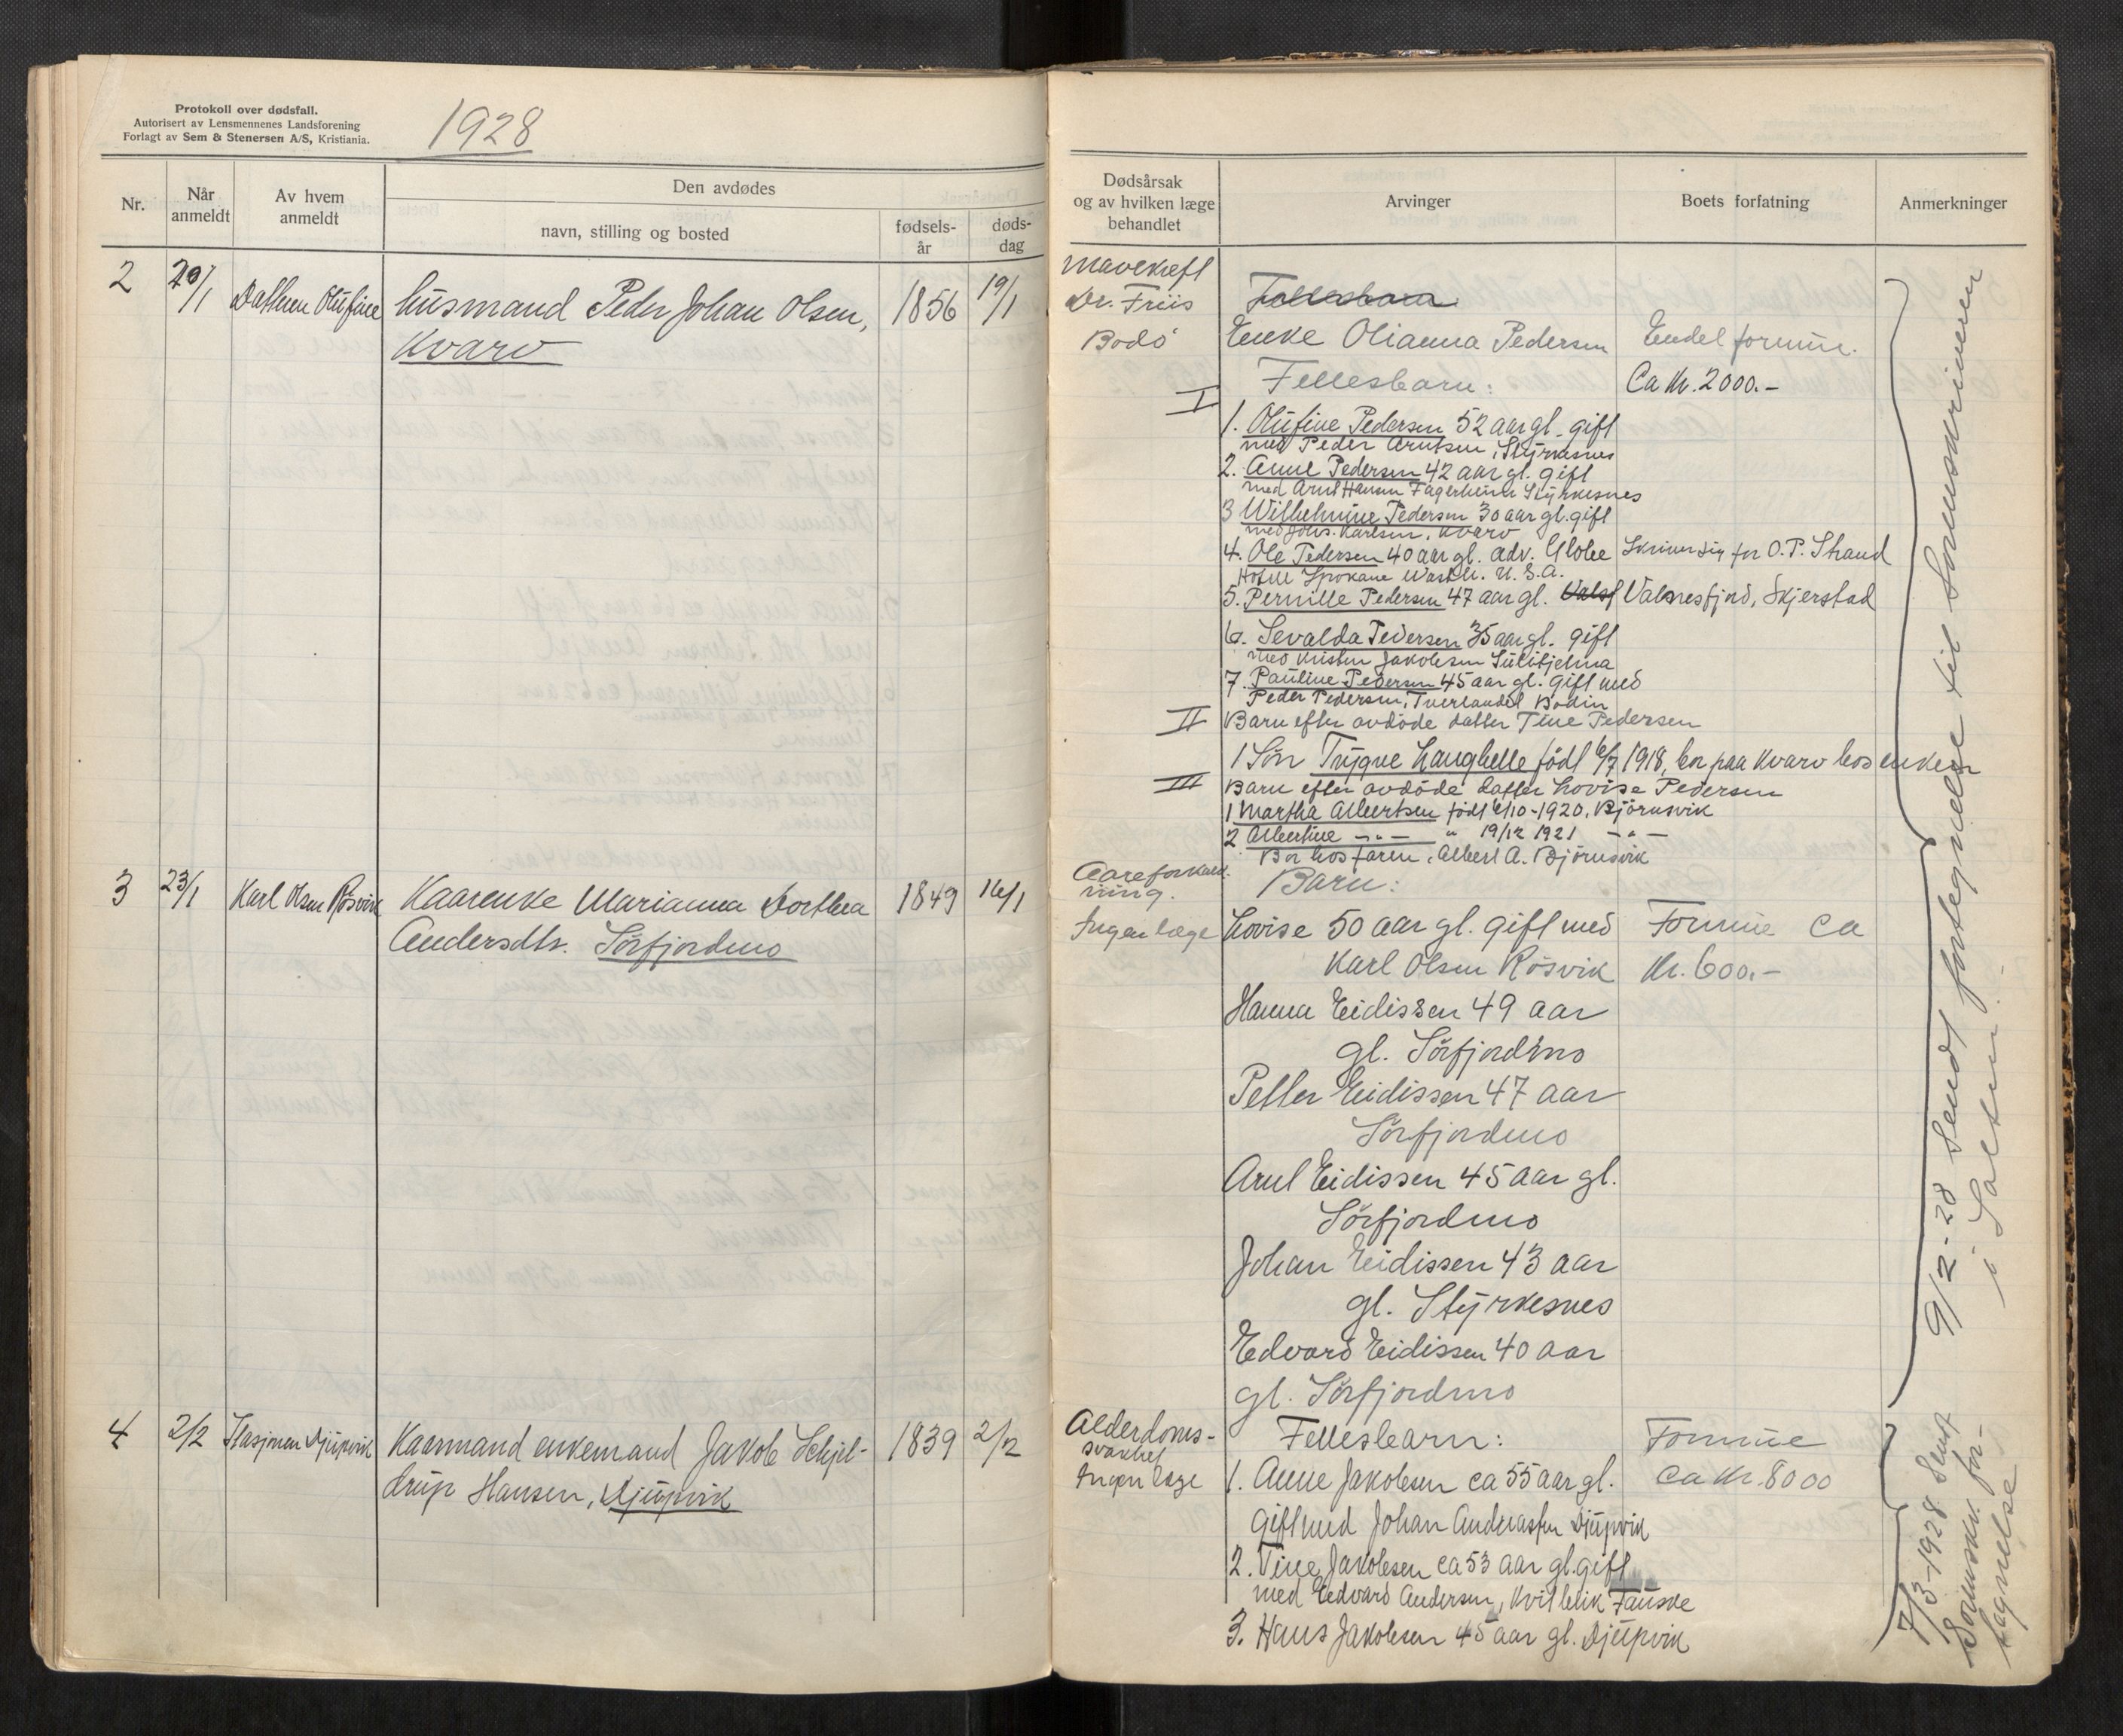 Protokoll over dødsfall.
Autorisert av Lensmennenes Landsforening
Forlagt av Sem & Stenersen A/S, Kristiania.
1928
Nr.
Når anmeldt
Av hvem anmeldt
Den avdødes
navn, stilling og bosted
fødsels-år
døds-dag
Dødsårsak
og av hvilken læge
behandlet
Arvinger
Boets forfatning
Anmerkninger
2
20/1
Datteren Olufine
husmand Peder Johan Olsen,
Kvarv
1856
19/1
Mavekræft
Dr. Friis
Bodö
Fellesbarn
Enke Olianna Pedersen
Endel formue.
Fellesbarn:
Ca kr. 2000.-
I
1. Olufine Pedersen 52 aar gl. gift
med Peder Arntsen, Styrkesnes
2. Anne Pedersen 42 aar gl. gift
med Arnt Hansen Fagerheim Styrkesnes
3 Wilhelmine Pedersen 30 aar gl. gift
med Johs. Karlsen, Kvarv
4. Ole Pedersen 40 aar gl. adv. Globe Skriver sig for O.P. Strand
Hotell Spokane Wash. U.S.A.
5. Pernille Pedersen 47 aar gl. Valsf Valnesfjord, Skjerstad
6. Sevalda Pedersen 35 aar gl. gift
med Kristen Jakobsen Sulitjelma
7. Pauline Pedersen 45 aar gl. gift med
Peder Pedersen, Tverlandet Bodin
II
Barn efter avdöde datter Tine Pedersen
1 Sön Trygve Langhelle födt 6/7 1918, bor paa Kvarv hos enken
III
Barn efter avdöde datter Lovise Pedersen
1 Martha Albertsen födt 6/10-1920, Björnsvik
2 Albertine -"- " 19/12 1921 -"-
Bor hos faren, Albert A. Björnsvik
3
23/1
Karl Olsen Rösvik
Kaarenke Marianna Dorthea
Andersdtr. Sörfjordmo
1849
16/1
Aareforkalk-
ning.
Ingen læge
Barn:
Lovise 50 aar gl. gift med
Karl Olsen Rösvik
Formue ca
Kr. 600.-
Hanna Eidissen 49 aar
gl. Sörfjordmo
Petter Eidissen 47 aar
Sörfjordmo
Arnt Eidissen 45 aar gl.
Sörfjordmo
Johan Eidissen 43 aar
gl. Styrkesnes
Edvard Eidissen 40 aar
gl. Sörfjordmo
9/2-28 Sendt fortegnelse til Sorenskriveren
i Salten.
4
2/2
Stasjonen Djupvik
Kaarmand enkemand Jakob Schjel-
drup Hansen, Djupvik
1839
2/2
Alderdoms-
svakhet
Ingen læge
Fellesbarn:
Formue
ca kr. 8000
1. Anne Jakobsen ca 55 aar gl.
gift med Johan Andreassen Djupvik
2. Tine Jakobsen ca 53 aar gl. gift
med Edvard Andersen, Kvitblik Fauske
3. Hans Jakobsen 45 aar gl. Djupvik
7/3-1928 Sendt
Sorenskr. for-
tegnelse